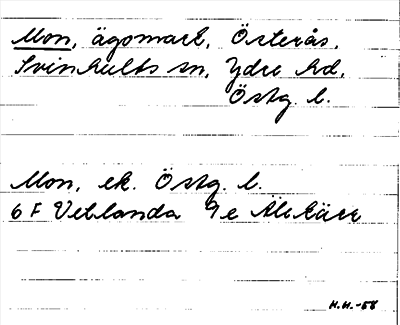 Mon, ägomark, Österås,
Svinhults sn, Ydre hd,
Östg. l.
Mon, ek. Östg. l.
6 F Vetlanda 9e Älekärr
H.H.-58